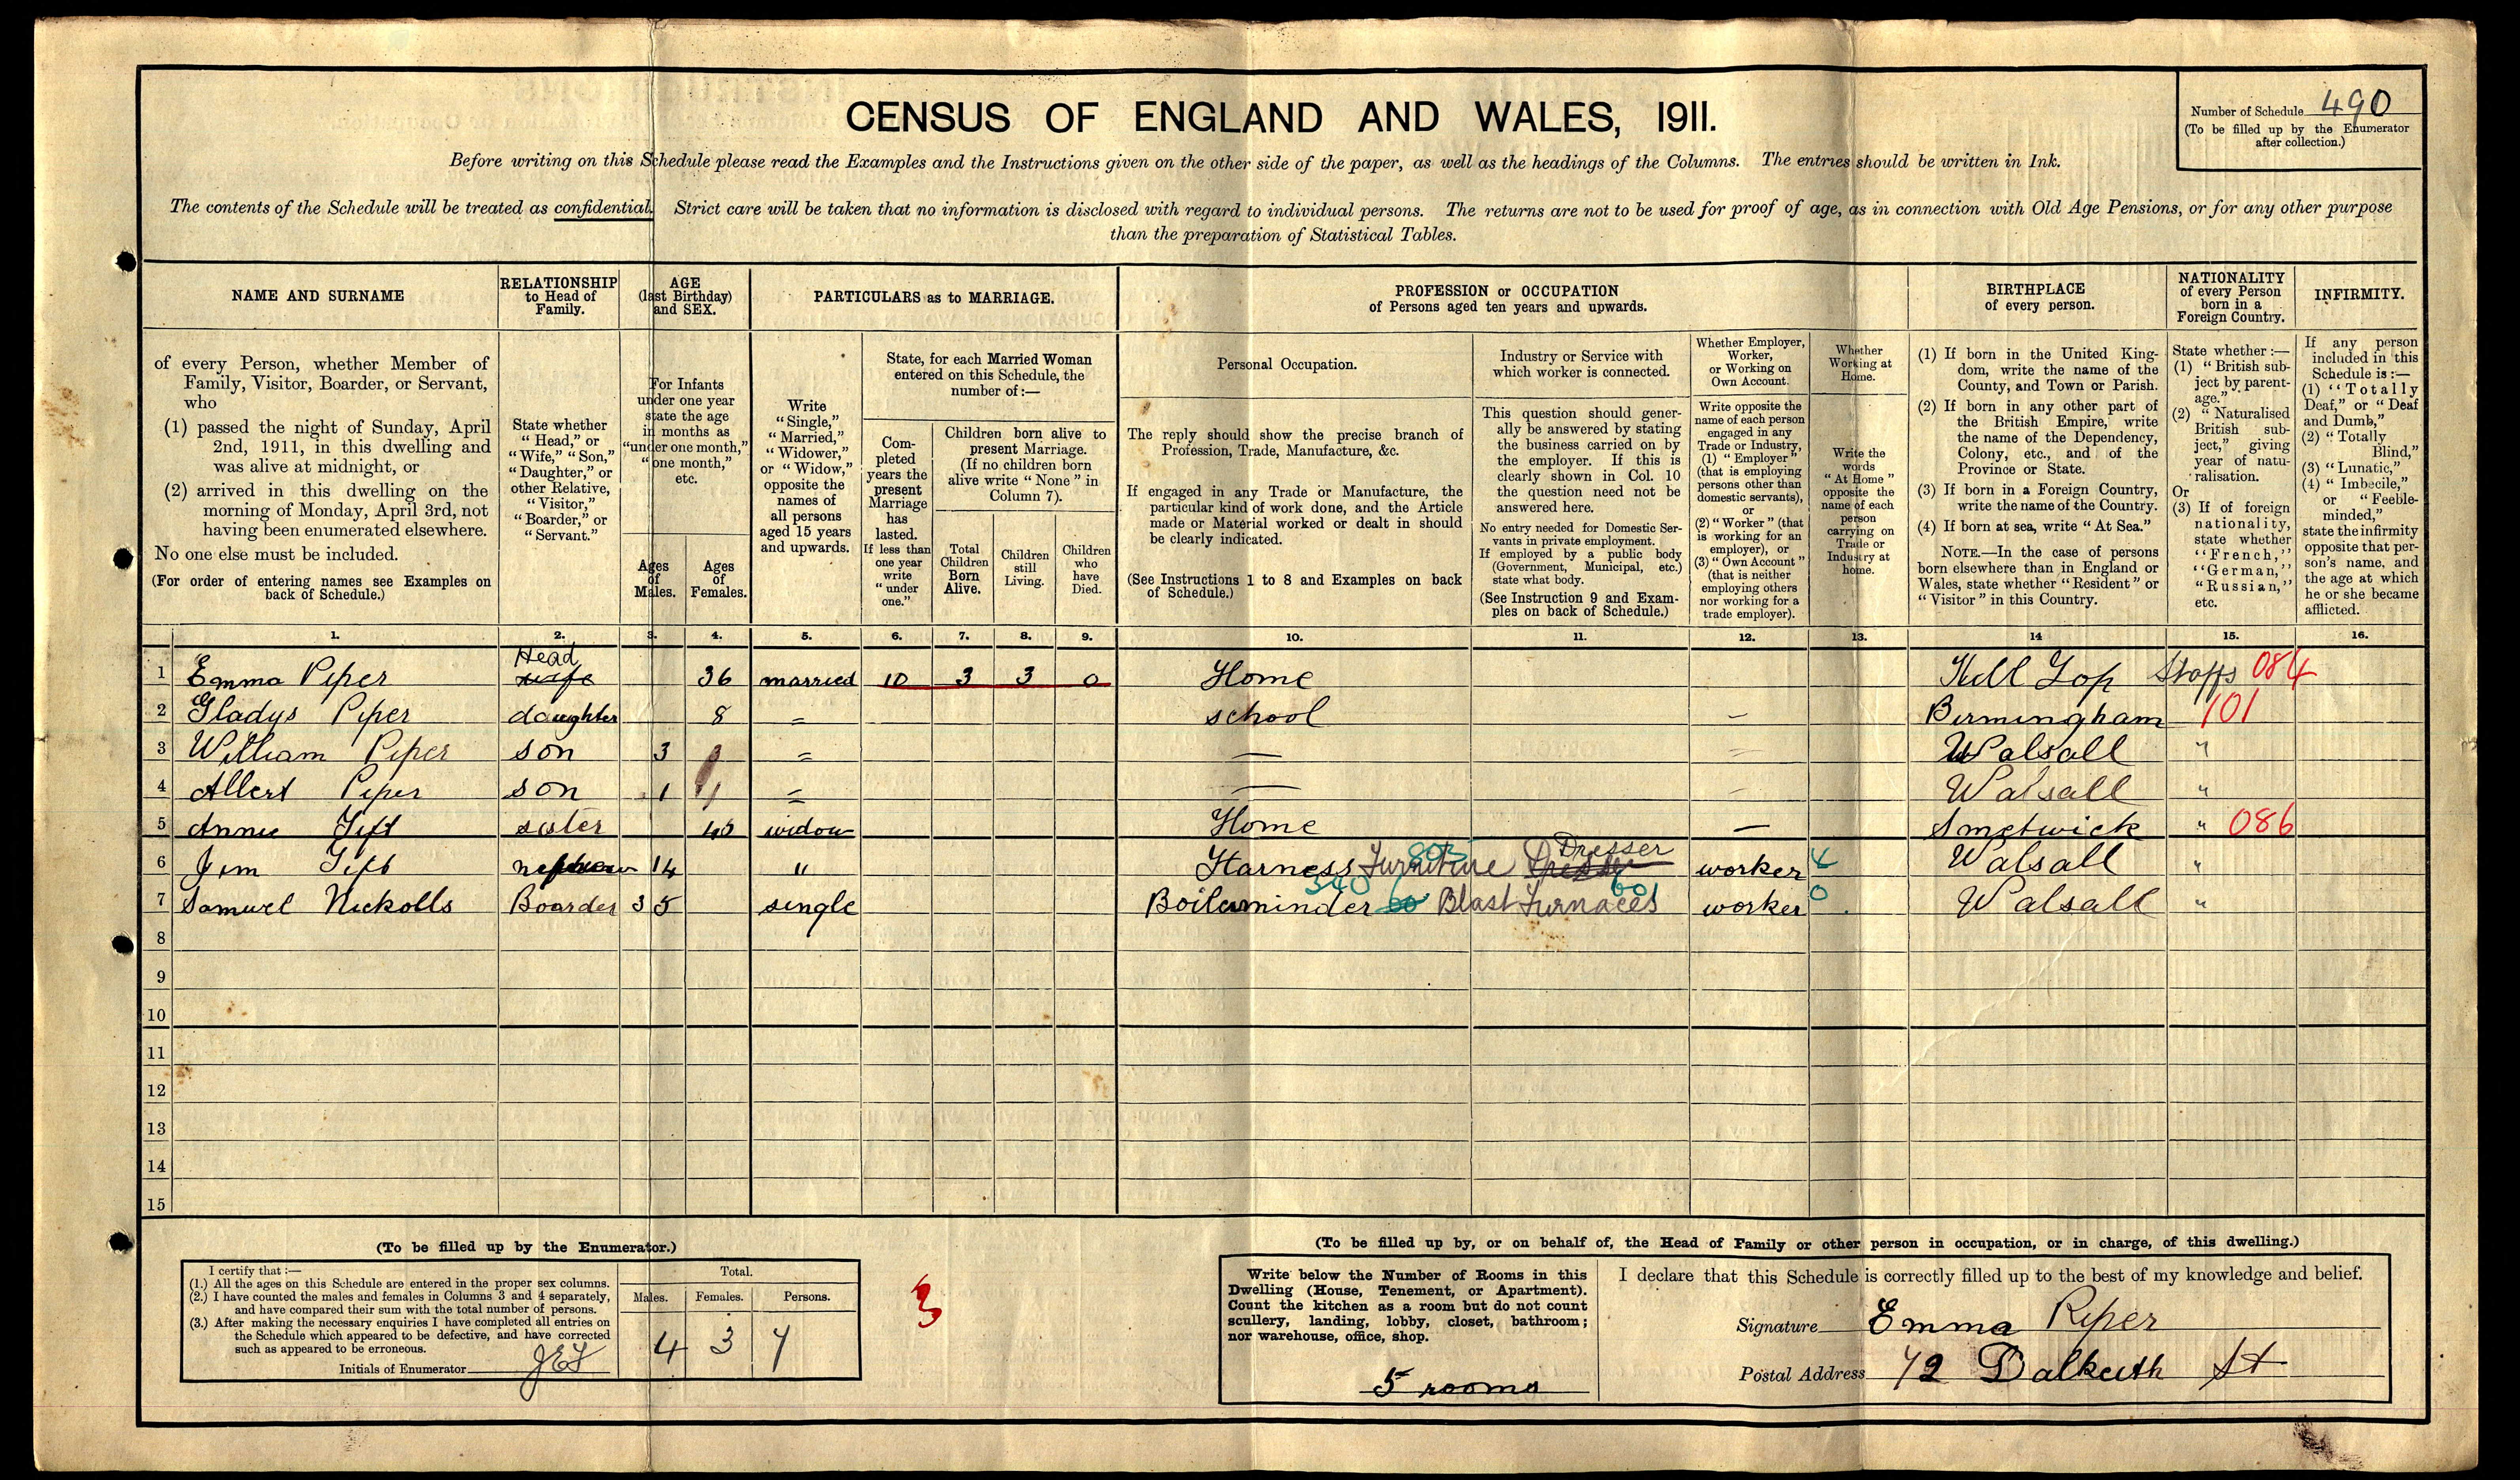 CENSUS OF ENGLAND AND WALES, 1911.
Number of Schedule 490
(To be filled up by the Enumerator
after collection.)
Before writing on this Schedule please read the Examples and the Instructions given on the other side of the paper, as well as the headings of the Columns. The entries should be written in Ink.
The contents of the Schedule will be treated as confidential. Strict care will be taken that no information is disclosed with regard to individual persons. The returns are not to be used for proof of age, as in connection with Old Age Pensions, or for any other purpose
than the preparation of Statistical Tables.
NAME AND SURNAME
of every Person, whether Member of
Family, Visitor, Boarder, or Servant,
who
(1) passed the night of Sunday, April
2nd, 1911, in this dwelling and
was alive at midnight, or
(2) arrived in this dwelling on the
morning of Monday, April 3rd, not
having been enumerated elsewhere.
No one else must be included.
(For order of entering names see Examples on
back of Schedule.)
RELATIONSHIP
to Head of
Family.
State whether
"Head," or
"Wife," "Son,"
"Daughter," or
other Relative,
"Visitor,"
"Boarder," or
"Servant."
AGE
(last Birthday)
and SEX.
For Infants
under one year
state the age
in months as
"under one month,"
"one month,"
etc.
Ages
of
Males.
Ages
of
Females.
PARTICULARS as to MARRIAGE.
Write
"Single,"
"Married,"
"Widower,"
or "Widow,"
opposite the
names of
all persons
aged 15 years
and upwards.
State, for each Married Woman
entered on this Schedule, the
number of:—
Com-
pleted
years the
present
Marriage
has
lasted.
If less than
one year
write
"under
one."
Children born alive to
present Marriage.
(If no children born
alive write "None" in
Column 7).
Total
Children
Born
Alive.
Children
still
Living.
Children
who
have
Died.
PROFESSION or OCCUPATION
of Persons aged ten years and upwards.
Personal Occupation.
The reply should show the precise branch of
Profession, Trade, Manufacture, &c.
If engaged in any Trade or Manufacture, the
particular kind of work done, and the Article
made or Material worked or dealt in should
be clearly indicated.
(See Instructions 1 to 8 and Examples on back
of Schedule.)
Industry or Service with
which worker is connected.
This question should gener-
ally be answered by stating
the business carried on by
the employer. If this is
clearly shown in Col. 10
the question need not be
answered here.
No entry needed for Domestic Ser-
vants in private employment.
If employed by a public body
(Government, Municipal, etc.)
state what body.
(See Instruction 9 and Exam-
ples on back of Schedule.)
Whether Employer,
Worker,
or Working on
Own Account.
Write opposite the
name of each person
engaged in any
Trade or Industry,
(1) "Employer"
(that is employing
persons other than
domestic servants),
or
(2) "Worker" (that
is working for an
employer), or
(3) "Own Account"
(that is neither
employing others
nor working for a
trade employer).
Whether
Working at
Home.
Write the
words
"At Home"
opposite the
name of each
person
carrying on
Trade or
Industry at
home.
BIRTHPLACE
of every person.
(1) If born in the United King-
dom, write the name of the
County, and Town or Parish.
(2) If born in any other part of
the British Empire, write
the name of the Dependency,
Colony, etc., and of the
Province or State.
(3) If born in a Foreign Country,
write the name of the Country.
(4) If born at sea, write "At Sea."
NOTE.—In the case of persons
born elsewhere than in England or
Wales, state whether "Resident" or
"Visitor" in this Country.
NATIONALITY
of every Person
born in a
Foreign Country.
State whether:—
(1) "British sub-
ject by parent-
age."
(2) "Naturalised
British sub-
ject," giving
year of natu-
ralisation.
Or
(3) If of foreign
nationality,
state whether
"French,"
"German,"
"Russian,"
etc.
INFIRMITY.
If any person
included in this
Schedule is:—
(1) "Totally
Deaf," or "Deaf
and Dumb,"
(2) "Totally
Blind,"
(3) "Lunatic,"
(4) "Imbecile,"
or "Feeble-
minded,"
state the infirmity
opposite that per-
son's name, and
the age at which
he or she became
afflicted.
1. 2. 3. 4. 5. 6. 7. 8. 9. 10. 11. 12. 13. 14 15. 16.
Head
1 Emma Piper wife 36 married 10 3 3 0 Home Hill Top Staffs 084
2 Gladys Piper daughter 8 = school — Birmingham 101
3 William Piper son 3 = — Walsall "
4 Albert Piper son 1 = — Walsall "
5 Annie Tift sister widow Home — Smethwick " 086
Dresser
6 Jim Tift nephew 14 " Harness Furniture worker 4 Walsall "
340 601
7 Samuel Nickolls Boarder 35 single Boilerminder Blast Furnaces worker 0 Walsall "
8
9
10
11
12
13
14
15
(To be filled up by the Enumerator.)
I certify that:—
(1.) All the ages on this Schedule are entered in the proper sex columns.
(2.) I have counted the males and females in Columns 3 and 4 separately,
and have compared their sum with the total number of persons.
(3.) After making the necessary enquiries I have completed all entries on
the Schedule which appeared to be defective, and have corrected
such as appeared to be erroneous.
Initials of Enumerator
Total.
Males. Females. Persons.
4 3 7
3
(To be filled up by, or on behalf of, the Head of Family or other person in occupation, or in charge, of this dwelling.)
Write below the Number of Rooms in this
Dwelling (House, Tenement, or Apartment).
Count the kitchen as a room but do not count
scullery, landing, lobby, closet, bathroom;
nor warehouse, office, shop.
5 rooms
I declare that this Schedule is correctly filled up to the best of my knowledge and belief.
Signature Emma Piper
Postal Address 72 Dalkeith St